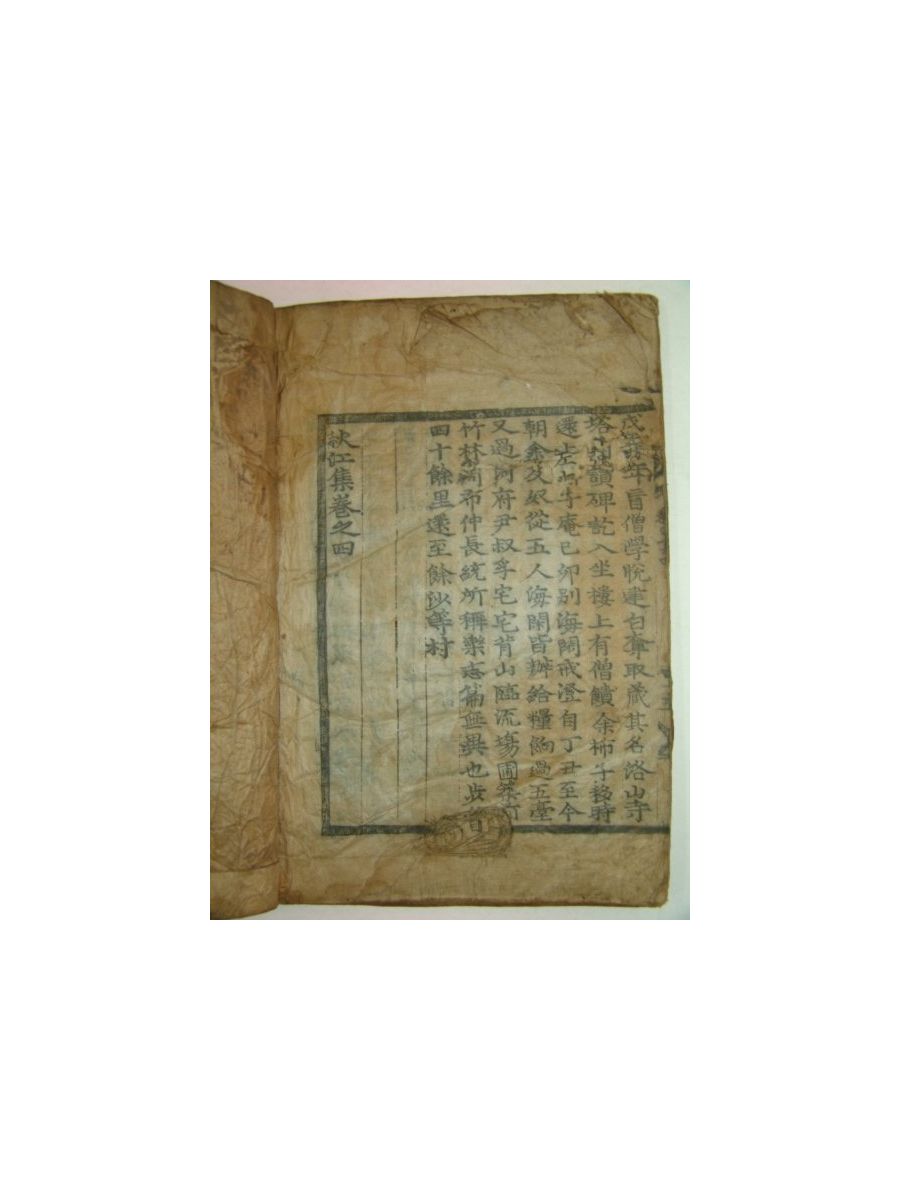 年盲僧學悅建白奪取藏其名洛山寺
塔下讀碑訖入坐樓上有僧饋余柿子移時
還庵己卯別海閑戒澄自丁丑至今
朝奴從五人海閑皆辦給糧餉過五臺
又過河府尹叔孚宅宅背山臨流場圃築前
竹林周布仲長統所稱樂志篇無異也步
四十餘里還至餘沙等村
秋江集卷之四